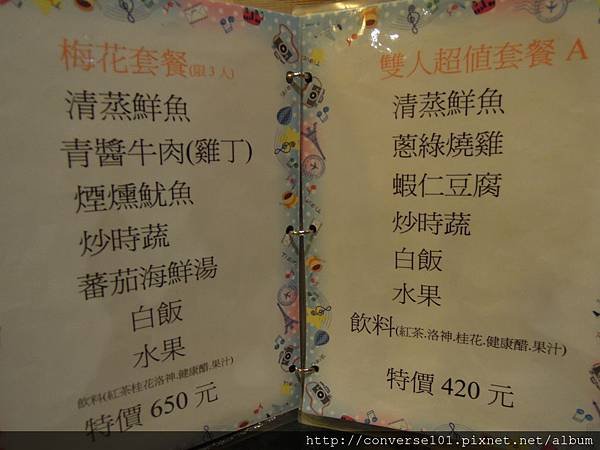 梅花套餐(限3人)
清蒸鮮魚
青醬牛肉(雞丁)
煙燻魷魚
炒時蔬
蕃茄海鮮湯
白飯
水果
飲料(紅茶桂花洛神.健康醋.果汁)
特價 650 元
雙人超值套餐 A
清蒸鮮魚
蔥綠燒雞
蝦仁豆腐
炒時蔬
白飯
水果
飲料(紅茶.洛神.桂花.健康醋.果汁)
特價 420 元
http://converse101.pixnet.net/album